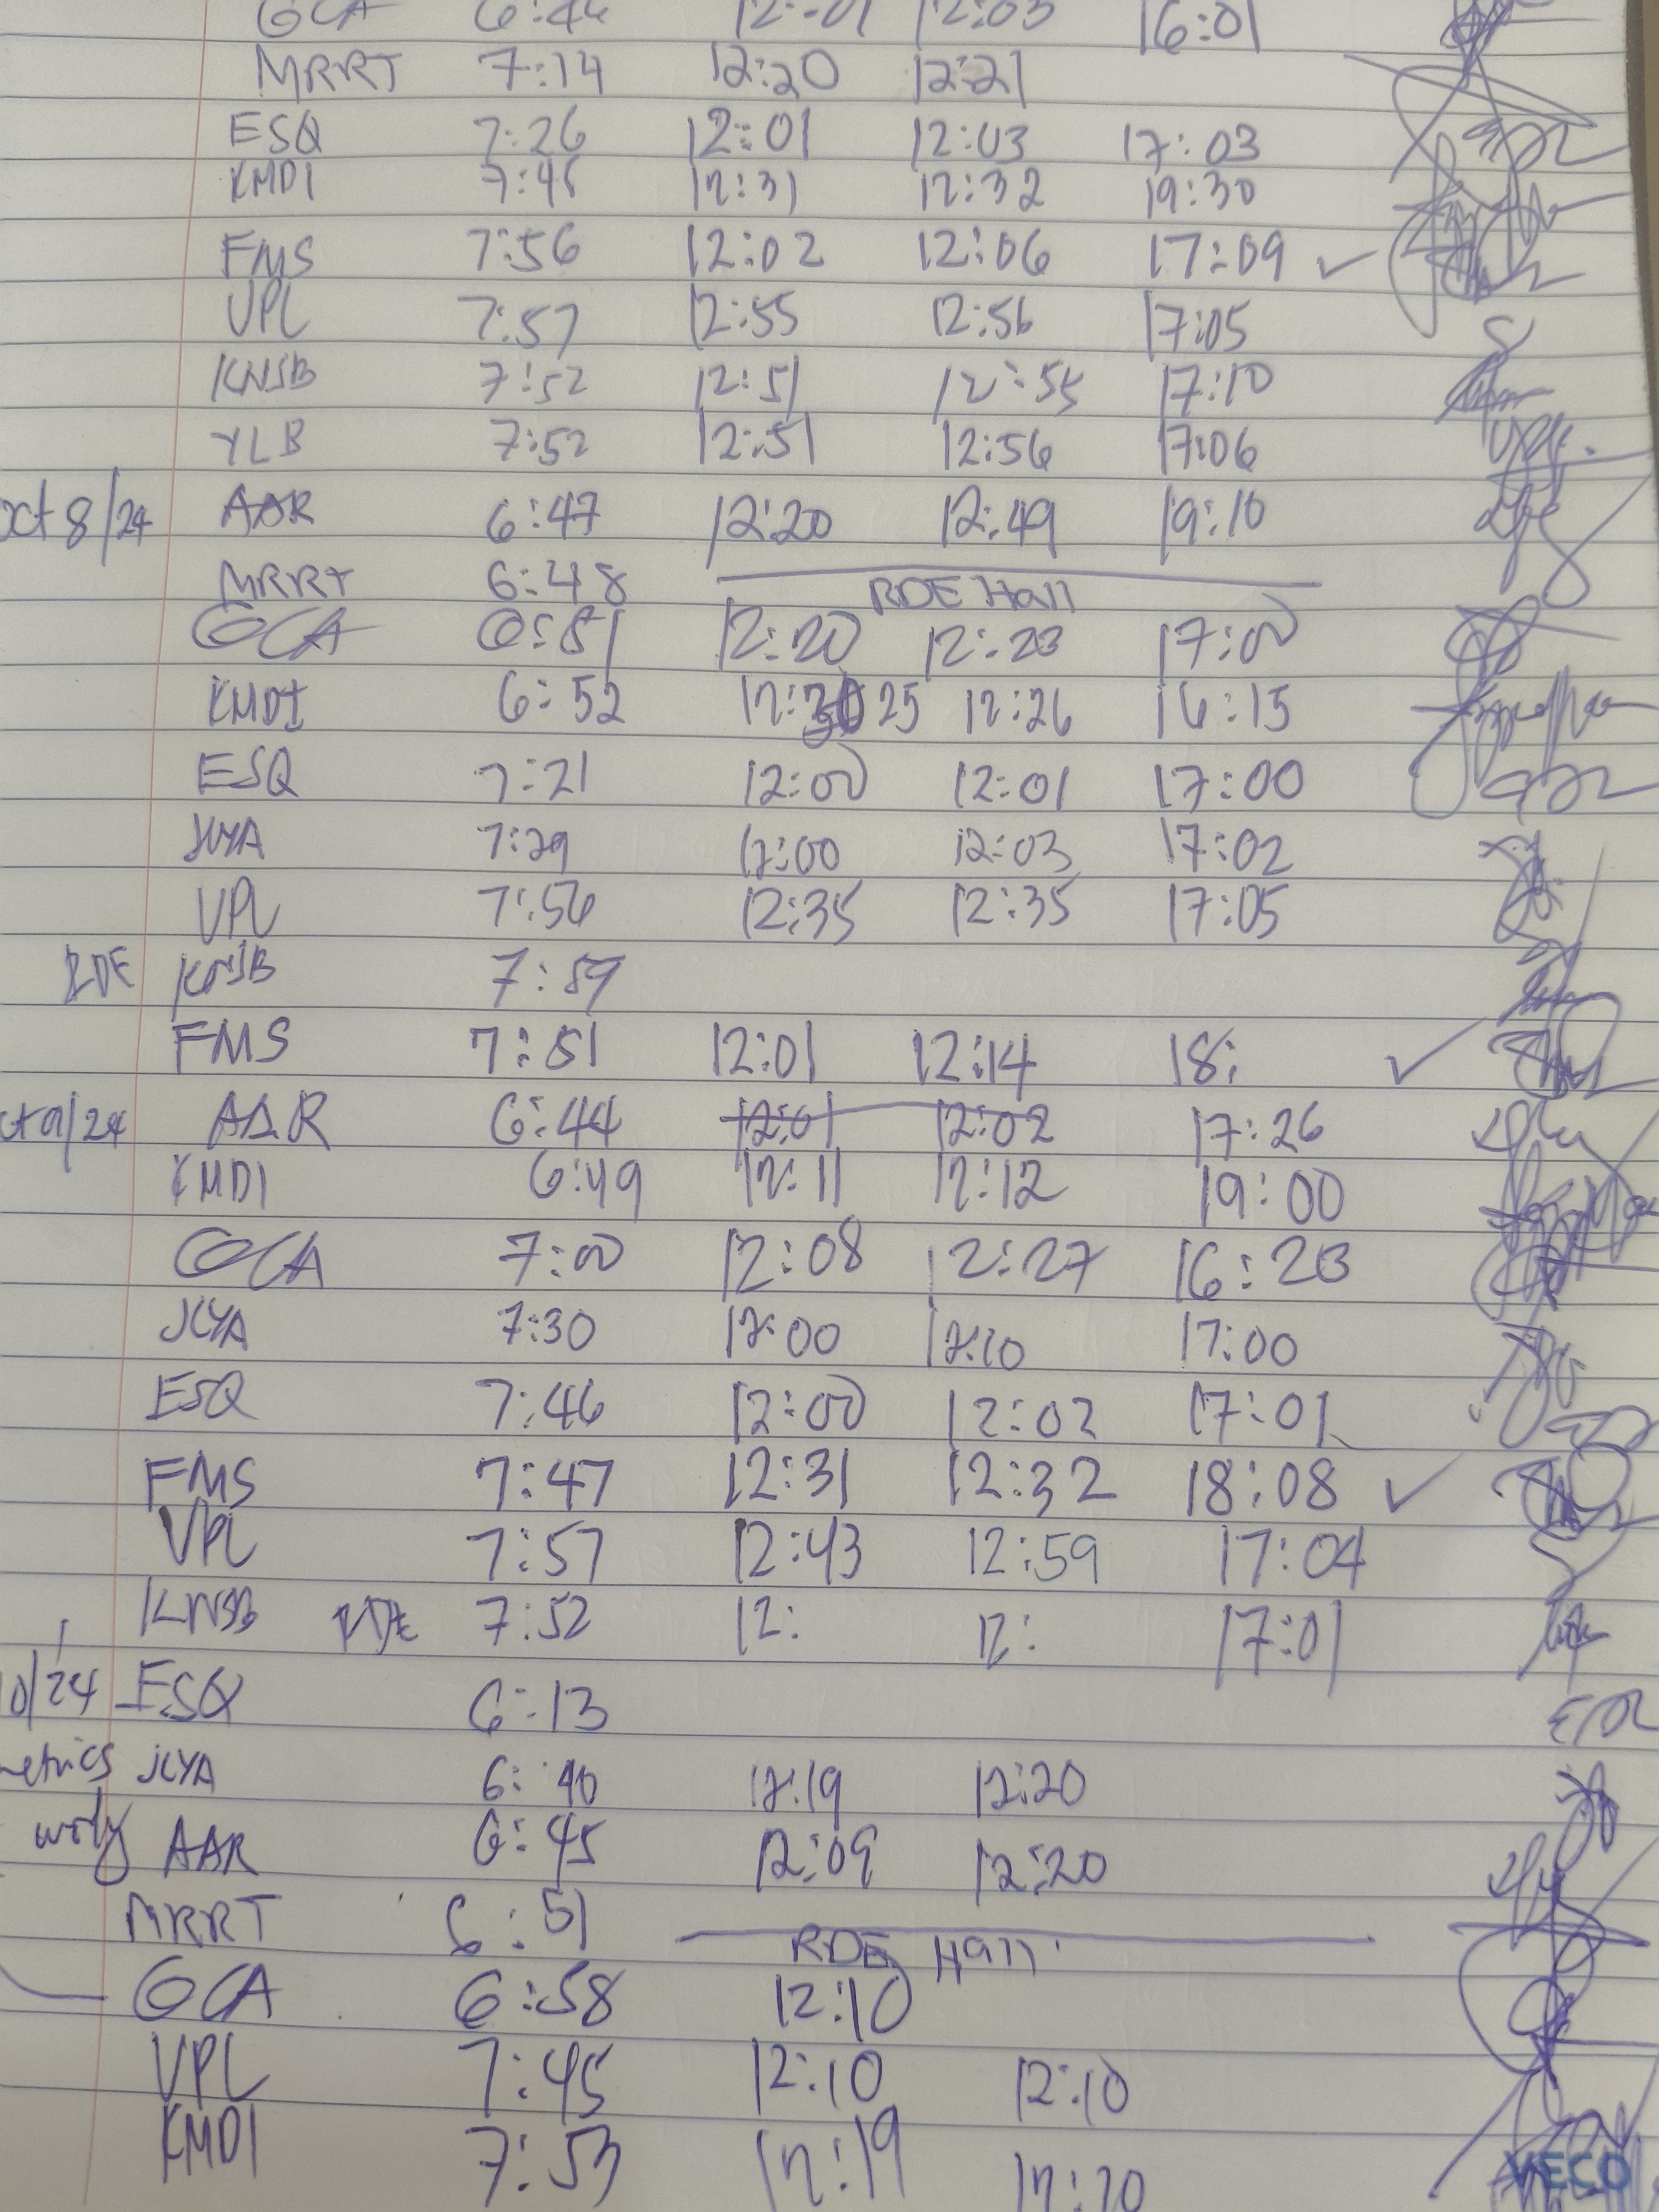 GCA 6:44 12:01 12:03 16:01
MRRT 7:14 12:20 12:21
ESQ 7:26 12:01 12:03 17:03
KMDI 7:45 12:31 12:32 19:30
FMS 7:56 12:02 12:06 17:09 ✓
VPL 7:57 12:55 12:56 17:05
KNSB 7:52 12:51 12:55 17:10
YLB 7:52 12:51 12:56 17:06
Oct 8/24 AAR 6:47 12:20 12:49 19:10
MRRT 6:48 RDE Hall
GCA 6:51 12:20 12:23 17:00
KMDI 6:52 12:25 12:26 16:15
ESQ 7:21 12:00 12:01 17:00
JLYA 7:29 12:00 12:03 17:02
VPL 7:56 12:35 12:35 17:05
RDE KNSB 7:59
FMS 7:51 12:01 12:14 18: ✓
ct 9/24 AAR 6:44 12:01 12:02 17:26
KMDI 6:49 12:11 12:12 19:00
GCA 7:00 12:08 12:27 16:23
JLYA 7:30 12:00 12:10 17:00
ESQ 7:46 12:00 12:02 17:01
FMS 7:47 12:31 12:32 18:08 ✓
VPL 7:57 12:43 12:59 17:04
KNSB RDE 7:52 12: 12: 17:01
0/24 ESQ 6:13
etrics JLYA 6:40 12:19 12:20
AAR 6:45 12:09 12:20
MRRT 6:51 RDE Hall
GCA 6:58 12:10
VPL 7:45 12:10 12:10
KMDI 7:53 12:19 12:20
VECO